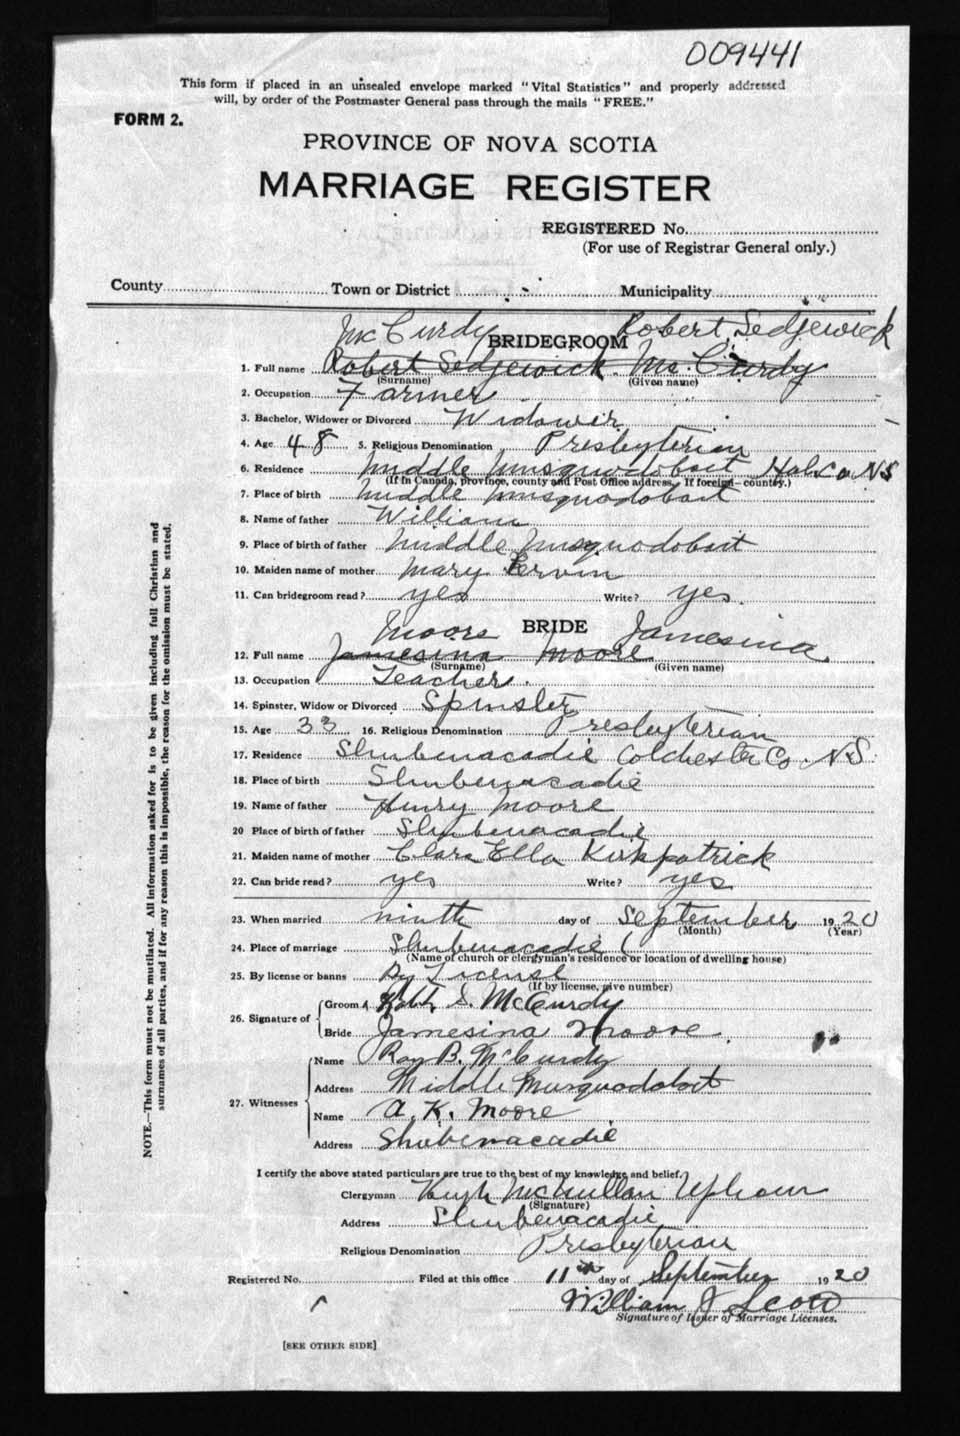 009441
This form if placed in an unsealed envelope marked "Vital Statistics" and properly addressed
will, by order of the Postmaster General pass through the mails "FREE."
FORM 2.
PROVINCE OF NOVA SCOTIA
MARRIAGE REGISTER
REGISTERED No.
(For use of Registrar General only.)
County Town or District Municipality
McCurdy BRIDEGROOM Robert Sedgewick
1. Full name Robert Sedgewick McCurdy
(Surname) (Given name)
2. Occupation Farmer
3. Bachelor, Widower or Divorced Widower
4. Age 48 5. Religious Denomination Presbyterian
6. Residence Middle Musquodoboit Hal. Co NS
(If in Canada, province, county and Post Office address. If foreign—country.)
7. Place of birth Middle Musquodoboit
8. Name of father William
9. Place of birth of father Middle Musquodoboit
10. Maiden name of mother Mary Ervin
11. Can bridegroom read? yes Write? yes.
Moore BRIDE Jamesina
12. Full name Jamesina Moore
(Surname) (Given name)
13. Occupation Teacher.
14. Spinster, Widow or Divorced Spinster
15. Age 33 16. Religious Denomination Presbyterian
17. Residence Shubenacadie Colchester Co. N.S.
18. Place of birth Shubenacadie
19. Name of father Henry Moore
20 Place of birth of father Shubenacadie
21. Maiden name of mother Clara Ella Kirkpatrick
22. Can bride read? yes Write? yes
23. When married ninth day of September 1920
(Month) (Year)
24. Place of marriage Shubenacadie (
(Name of church or clergyman's residence or location of dwelling house)
25. By license or banns By License
(If by license, give number)
26. Signature of Groom Robt. S. McCurdy
Bride Jamesina Moore
27. Witnesses Name Roy B. McCurdy
Address Middle Musquodoboit
Name A. K. Moore
Address Shubenacadie
I certify the above stated particulars are true to the best of my knowledge and belief.
Clergyman Hugh McMillan Upham
(Signature)
Address Shubenacadie
Religious Denomination Presbyterian
Registered No. Filed at this office 11th day of September 1920
William J Scott
Signature of Issuer of Marriage Licenses.
[SEE OTHER SIDE]
NOTE.—This form must not be mutilated. All information asked for is to be given including full Christian and
surnames of all parties, and if for any reason this is impossible, the reason for the omission must be stated.